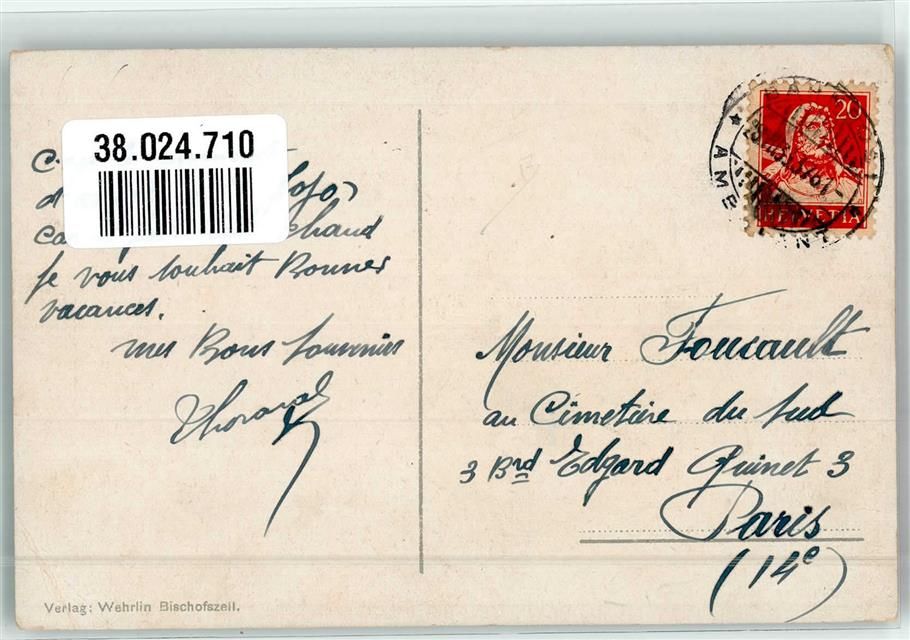 38.024.710
je vous souhait Bonnes
vacances.
mes Bons Souvenirs
20
HELVETIA
Monsieur Foucault
au Cimetière du Sud
3 Brd Edgard Quinet 3
Paris
(14e)
Verlag: Wehrlin Bischofszell.